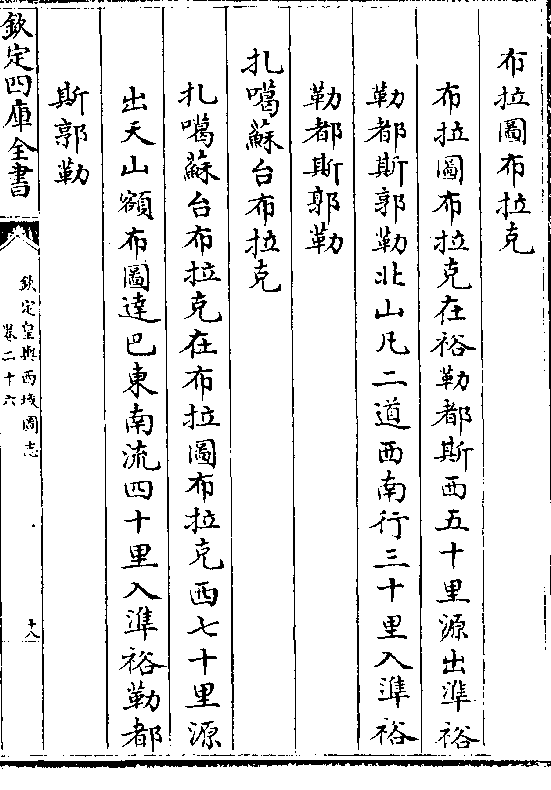 布拉圖布拉克
布拉圖布拉克在裕勒都斯西五十里源出準裕
勒都斯郭勒北山凡二道西南行三十里入準裕
勒都斯郭勒
扎噶蘇台布拉克
扎噶蘇台布拉克在布拉圖布拉克西七十里源
出天山額布圖達巴東南流四十里入準裕勒都
斯郭勒
欽定四庫全書
欽定皇輿西域圖志
卷二十六
十八